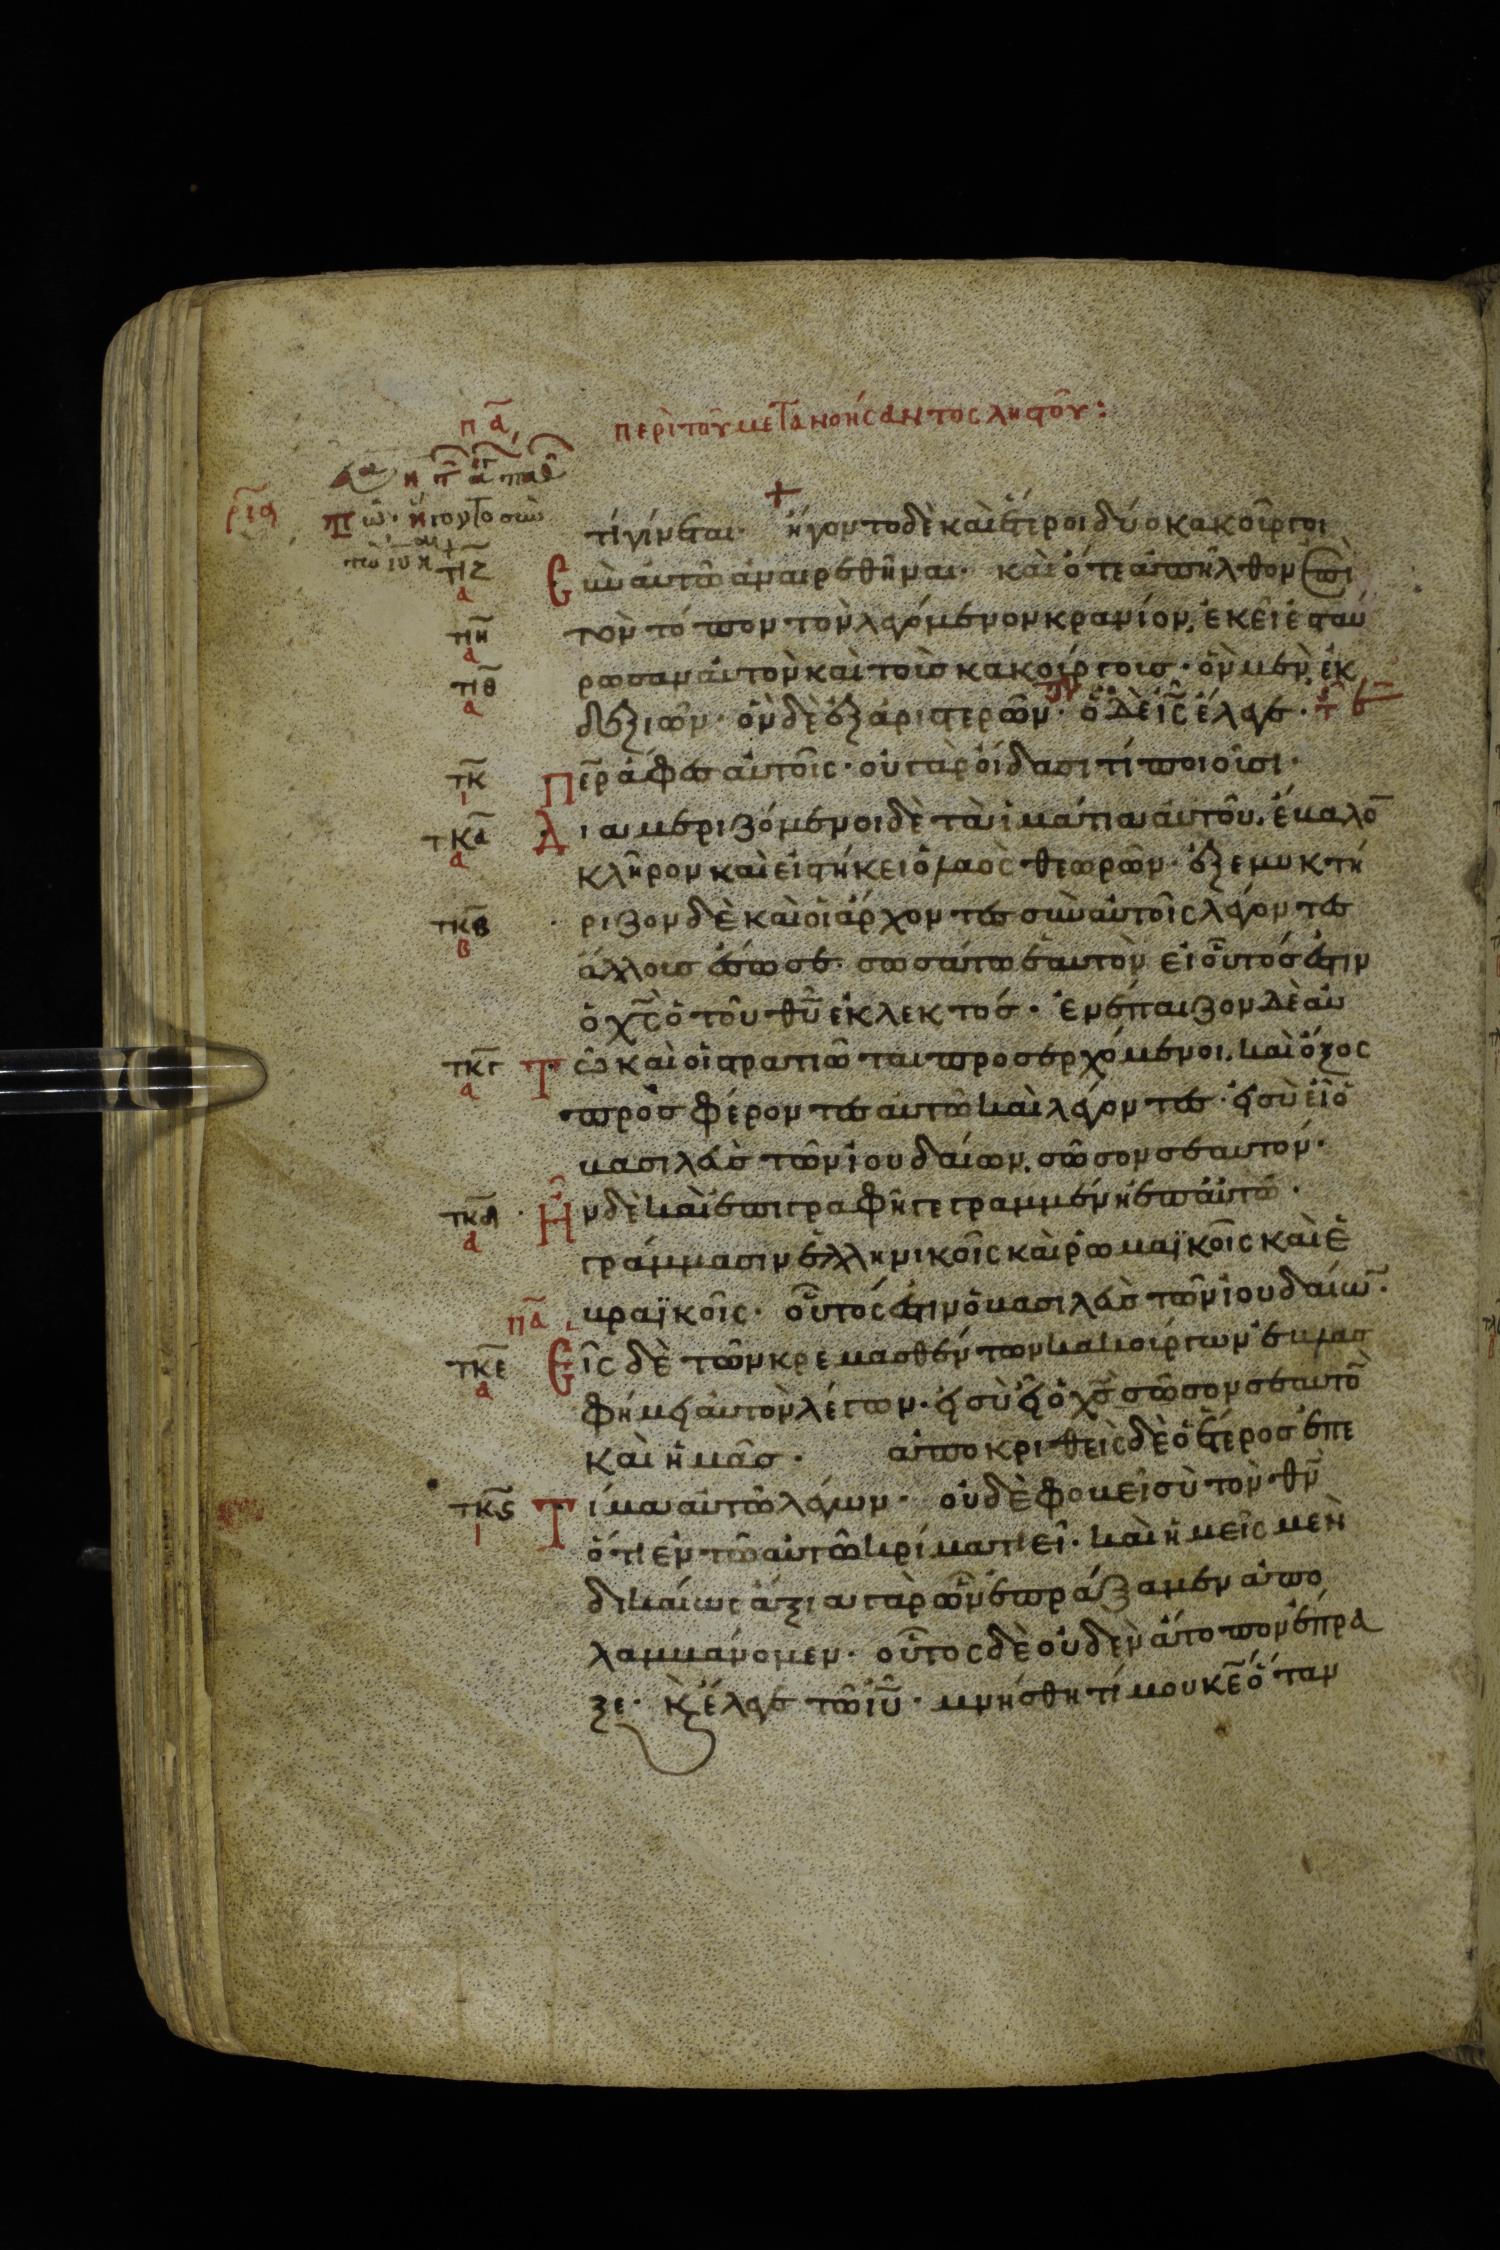 πα περὶ τοῦ μετανοήσαντος λῃστοῦ:
τί γίνεται· ἤγοντο δὲ καὶ ἕτεροι δύο κακοῦργοι
τιζ α Σὺν αὐτῶ ἀναιρεθῆναι· καὶ ὅτε ἀπῆλθον ἐπὶ
τιη α τὸν τόπον τὸν λεγόμενον κρανίον, ἐκεῖ ἐσταύ
τιθ α ρωσαν αὐτὸν καὶ τοὺς κακούργους· ὃν μὲν ἐκ
δεξιῶν· ὃν δὲ ἐξ ἀριστερῶν· ὁ δὲ ις ἔλεγε·
τκ ι Περ ἄφες αὐτοῖς· οὐ γὰρ οἴδασι τί ποιοῦσι·
τκα α Διαμεριζόμενοι δὲ τὰ ἱμάτια αὐτοῦ. ἔβαλο
κλῆρον καὶ εἱστήκει ὁ λαὸς θεωρῶν· ἐξεμυκτή
τκβ β ριζον δὲ καὶ οἱ ἄρχοντες σὺν αὐτοῖς λέγοντες
ἄλλους ἔσωσε· σωσάτω ἑαυτὸν εἰ οὗτός ἐστιν
ὁ χς ὁ τοῦ θυ ἐκλεκτός· ἐνέπαιζον δὲ αὐ
τκγ α Τῶ καὶ οἱ στρατιῶται προσερχόμενοι. καὶ ὄξος
προσφέροντες αὐτῶ καὶ λέγοντες· εἰ σὺ εἶ ὁ
βασιλεὺς τῶν ἰουδαίων. σῶσον σεαυτόν·
τκδ α Ἦν δὲ καὶ ἐπιγραφὴ γεγραμμένη ἐπ αὐτῶ·
γράμμασιν ἑλληνικοῖς καὶ ῥωμαϊκοῖς καὶ ἑ
βραϊκοῖς· οὗτός ἐστιν ὁ βασιλεὺς τῶν ἰουδαίω·
πα
τκε α Εἷς δὲ τῶν κρεμασθέντων κακούργων ἐβλασ
φήμει αὐτὸν λέγων· εἰ σὺ εἶ ὁ χς σῶσον σεαυτὸ
καὶ ἡμᾶς· ἀποκριθεὶς δὲ ὁ ἕτερος ἐπε
τκς ι Τίμα αὐτῶ λέγων· οὐδὲ φοβεῖ σὺ τὸν θν
ὅτι ἐν τῶ αὐτῶ κρίματι εἶ· καὶ ἡμεῖς μὲν
δικαίως ἄξια γὰρ ὧν ἐπράξαμεν ἀπο
λαμβάνομεν· οὗτος δὲ οὐδὲν ἄτοπον ἔπρα
ξε· κ ἔλεγε τῶ ιυ· μνήσθητί μου κε ὅταν